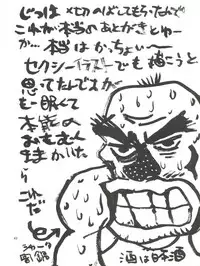 じつは 〆切のばしてもらったんで
これが本当のあとがきじゅー
か…本当はかっちょいー
セクシーイラストでも描こうと
思ってたんですが
も一眠くて
本能の
おもむく
ままかけ
ら
これだ
酒は日本酒